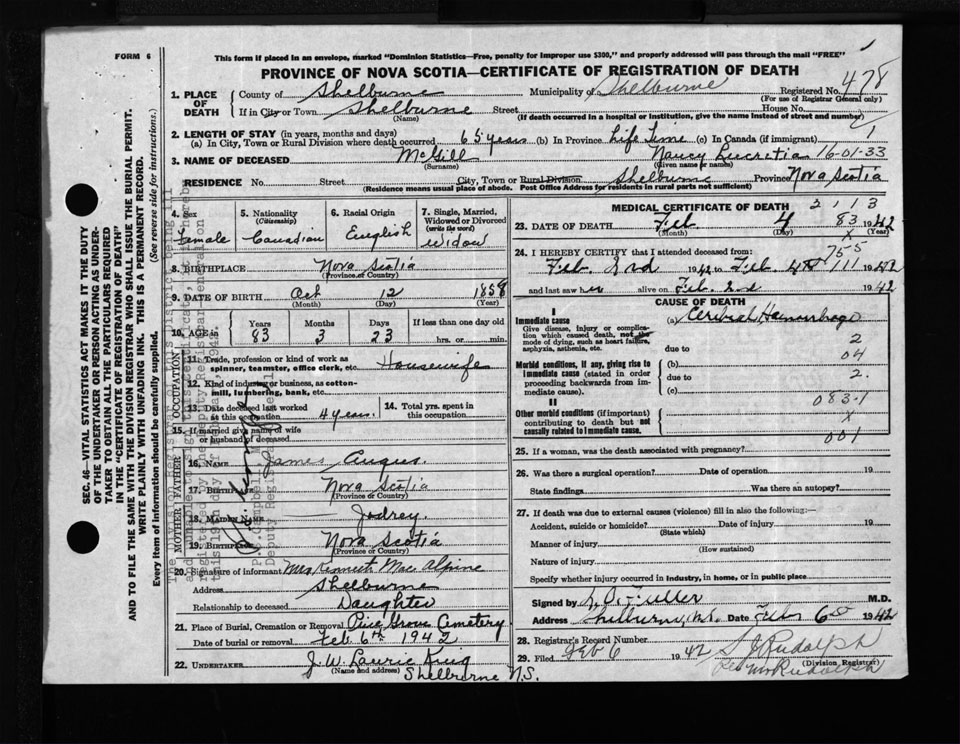 FORM 6
This form if placed in an envelope, marked "Dominion Statistics—Free, penalty for improper use $300," and properly addressed will pass through the mail "FREE"
PROVINCE OF NOVA SCOTIA—CERTIFICATE OF REGISTRATION OF DEATH
1. PLACE OF DEATH
County of Shelburne Municipality of Shelburne Registered No. 478
(For use of Registrar General only)
If in City or Town Shelburne Street House No.
(Name) (If death occurred in a hospital or institution, give the name instead of street and number)
2. LENGTH OF STAY (in years, months and days)
(a) In City, Town or Rural Division where death occurred 65 years (b) In Province Life Time (c) In Canada (if immigrant) 1
3. NAME OF DECEASED McGill Nancy Lucretia 16-01-33
(Surname) (Given name or names)
RESIDENCE No. Street City, Town or Rural Division Shelburne Province Nova Scotia
(Residence means usual place of abode. Post Office Address for residents in rural parts not sufficient)
4. Sex Female
5. Nationality (Citizenship) Canadian
6. Racial Origin English
7. Single, Married, Widowed or Divorced (write the word) Widow
8. BIRTHPLACE Nova Scotia
(Province or Country)
9. DATE OF BIRTH Oct 12 1858
(Month) (Day) (Year)
10. AGE in Years Months Days If less than one day old
83 3 23 hrs. or min.
OCCUPATION
11. Trade, profession or kind of work as spinner, teamster, office clerk, etc. Housewife
12. Kind of industry or business, as cotton-mill, lumbering, bank, etc.
13. Date deceased last worked at this occupation 4 years.
14. Total yrs. spent in this occupation.
15. If married give name of wife or husband of deceased
FATHER
16. NAME James Angus.
17. BIRTHPLACE Nova Scotia
(Province or Country)
MOTHER
18. MAIDEN NAME Jodrey.
19. BIRTHPLACE Nova Scotia
(Province or Country)
20. Signature of informant Mrs Kenneth Mac Alpine
Address Shelburne
Relationship to deceased Daughter
21. Place of Burial, Cremation or Removal Pine Grove Cemetery
Date of burial or removal Feb 6th 1942
22. UNDERTAKER J. W. Laurie King
(Name and address) Shelburne N.S.
MEDICAL CERTIFICATE OF DEATH 2 1 1 3
23. DATE OF DEATH Feb 4 83 1942
(Month) (Day) X (Year)
24. I HEREBY CERTIFY that I attended deceased from: 755
Feb. 2nd 1942 to Feb. 4th 111 1942
and last saw her alive on Feb. 2nd 1942
CAUSE OF DEATH
I
Immediate cause (a) Cerebral Hemorrhage
Give disease, injury or complication which caused death, not the mode of dying, such as heart failure, asphyxia, asthenia, etc.
2
due to 04
Morbid conditions, if any, giving rise to immediate cause (stated in order proceeding backwards from immediate cause). (b)
due to 2.
(c)
083-1
II
Other morbid conditions (if important) contributing to death but not causally related to immediate cause.
X
001
25. If a woman, was the death associated with pregnancy?
26. Was there a surgical operation? Date of operation 19
State findings Was there an autopsy?
27. If death was due to external causes (violence) fill in also the following:—
Accident, suicide or homicide? Date of injury 19
(State which)
Manner of injury
(How sustained)
Nature of injury
Specify whether injury occurred in industry, in home, or in public place
Signed by Fuller M.D.
Address Shelburne, N.S. Date Feb 6th 1942
28. Registrar's Record Number
29. Filed Feb 6 1942 Rudolph
(Division Registrar)
SEC. 46—VITAL STATISTICS ACT MAKES IT THE DUTY OF THE UNDERTAKER OR PERSON ACTING AS UNDERTAKER TO OBTAIN ALL THE PARTICULARS REQUIRED IN THE "CERTIFICATE OF REGISTRATION OF DEATH" AND TO FILE THE SAME WITH THE DIVISION REGISTRAR WHO SHALL ISSUE THE BURIAL PERMIT.
WRITE PLAINLY WITH UNFADING INK. THIS IS A PERMANENT RECORD.
Every item of information should be completely supplied. (See reverse side for instructions.)